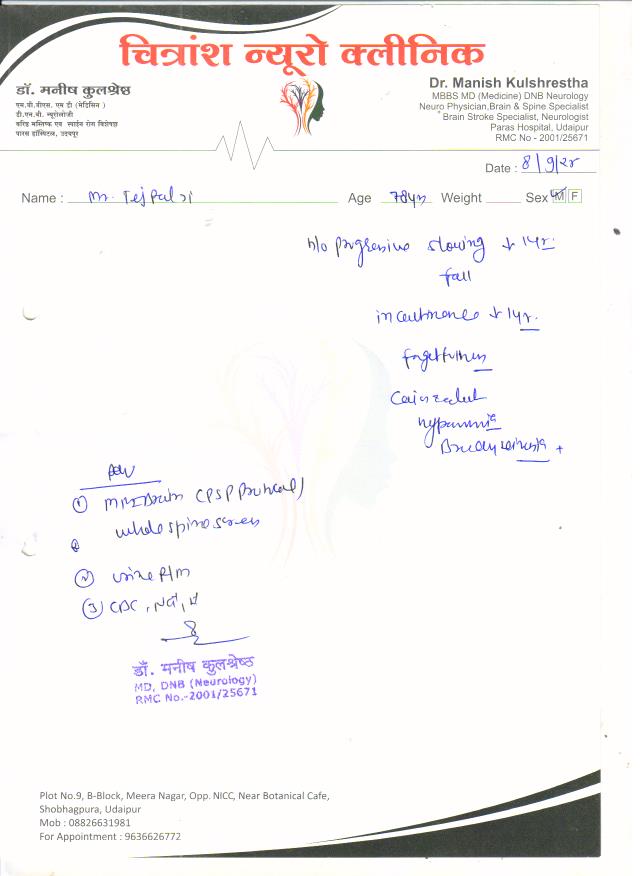 चित्रांश न्यूरो क्लीनिक
डॉ. मनीष कुलश्रेष्ठ
एम.बी.बीएस. एम डी (मेडिसिन)
डी.एन.बी. न्यूरोलोजी
वरिष्ठ मस्तिष्क एवं स्पाईन रोग विशेषज्ञ
पारस हॉस्पिटल, उदयपुर
Dr. Manish Kulshrestha
MBBS MD (Medicine) DNB Neurology
Neuro Physician,Brain & Spine Specialist
Brain Stroke Specialist, Neurologist
Paras Hospital, Udaipur
RMC No - 2001/25671
Date : 8/9/25
Name : Mr. Tejpal Age 78yrs Weight Sex M F
h/o progressive slowing ↓ 1yr.
fall
incontinence ↓ 1yr.
forgetfulness
hypomimia
Bradykinesia +
Adv
① MRI Brain (PSP Protocol)
whole spine screen
② urine R/M
③ CBC, Na+, K+
डॉ. मनीष कुलश्रेष्ठ
MD, DNB (Neurology)
RMC No.-2001/25671
Plot No.9, B-Block, Meera Nagar, Opp. NICC, Near Botanical Cafe,
Shobhagpura, Udaipur
Mob : 08826631981
For Appointment : 9636626772